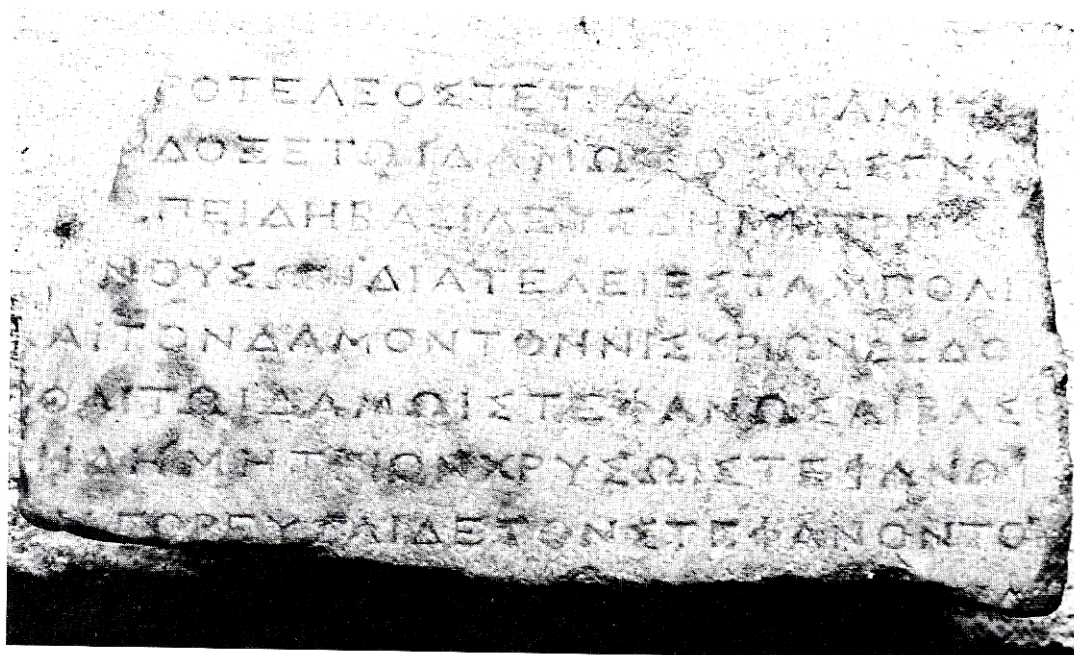 ΡΟΤΕΛΕΟΣΤΕΤΡΑΔ ΑΜΙ
ΔΟΞΕΤΩΙΔΑΜΩΙ ΜΑΣΓΝΩ
ΠΕΙΔΗΒΑΣΙΛΕΥΣΔΗΜΗΤΡΙ
ΝΟΥΣΩΝΔΙΑΤΕΛΕΙΕΣΤΑΜΠΟΛΙ
ΑΙΤΟΝΔΑΜΟΝΤΟΝΝΙΣΥΡΙΩΝΔΕΔΟ
ΘΑΙΤΩΙΔΑΜΩΙΣΤΕΦΑΝΩΣΑΙΒΑΣ
ΔΗΜΗΤΡΙΟΝΧΡΥΣΩΙΣΤΕΦΑΝΩΙ
ΓΟΡΕΥΣΑΙΔΕΤΟΝΣΤΕΦΑΝΟΝΤΟ